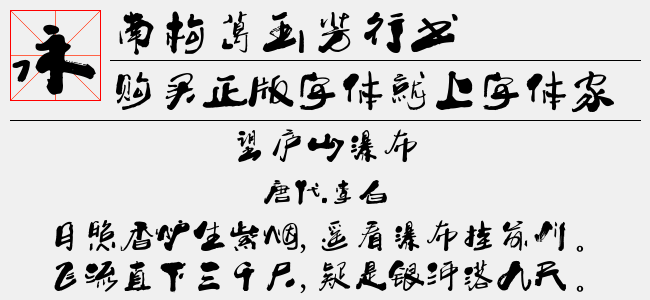 永
南构莴画芳行书
购买正版字体就上字体家
望庐山瀑布
唐代.李白
日照香炉生紫烟,遥看瀑布挂前川。
飞流直下三千尺,疑是银河落九天。